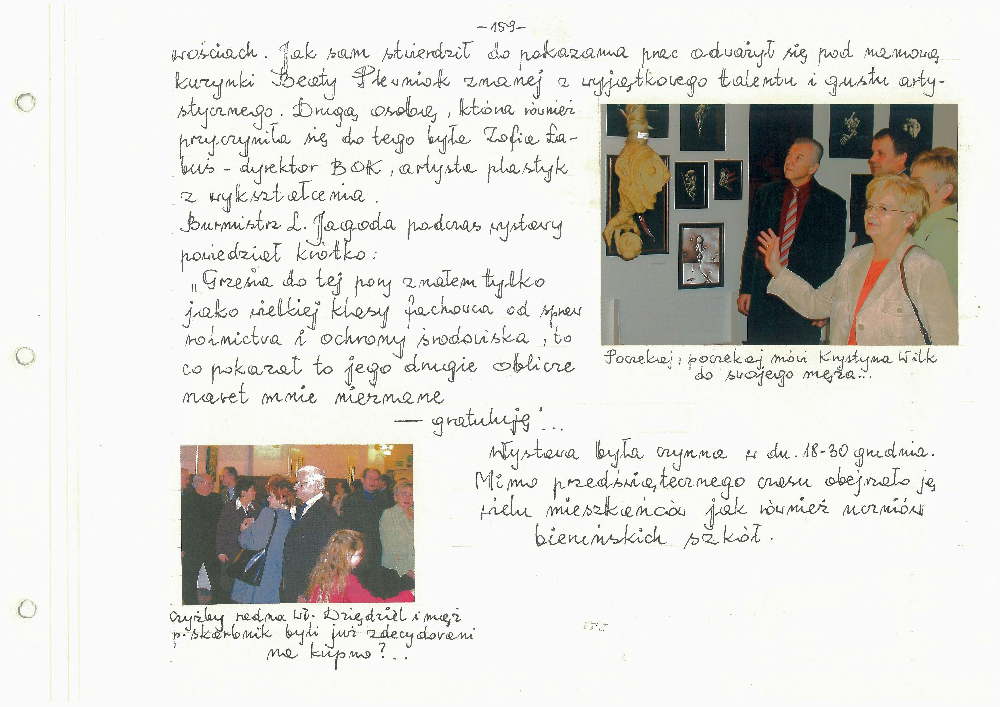 -159-
wościach. Jak sam stwierdził do pokazania prac odważył się pod namową
kuzynki Beaty Plewniok znanej z wyjątkowego talentu i gustu arty-
stycznego. Drugą osobą, która również
przyczyniła się do tego była Zofia Ła-
buś - dyrektor BOK, artysta plastyk
z wykształcenia.
Burmistrz L. Jagoda podczas wystawy
powiedział krótko:
"Grzesia do tej pory znałem tylko
jako wielkiej klasy fachowca od spraw
rolnictwa i ochrony środowiska, to
co pokazał to jego drugie oblicze
nawet mnie nieznane
— gratuluję"...
Poczekaj, poczekaj mówi Krystyna Wilk
do swojego męża...
Wystawa była czynna w dn. 18-30 grudnia.
Mimo przedświątecznego czasu obejrzało ją
wielu mieszkańców jak również uczniów
bieruńskich szkół.
Czyżby radna Wł. Dziędziel i mąż
p. skarbnik byli już zdecydowani
na kupno?...